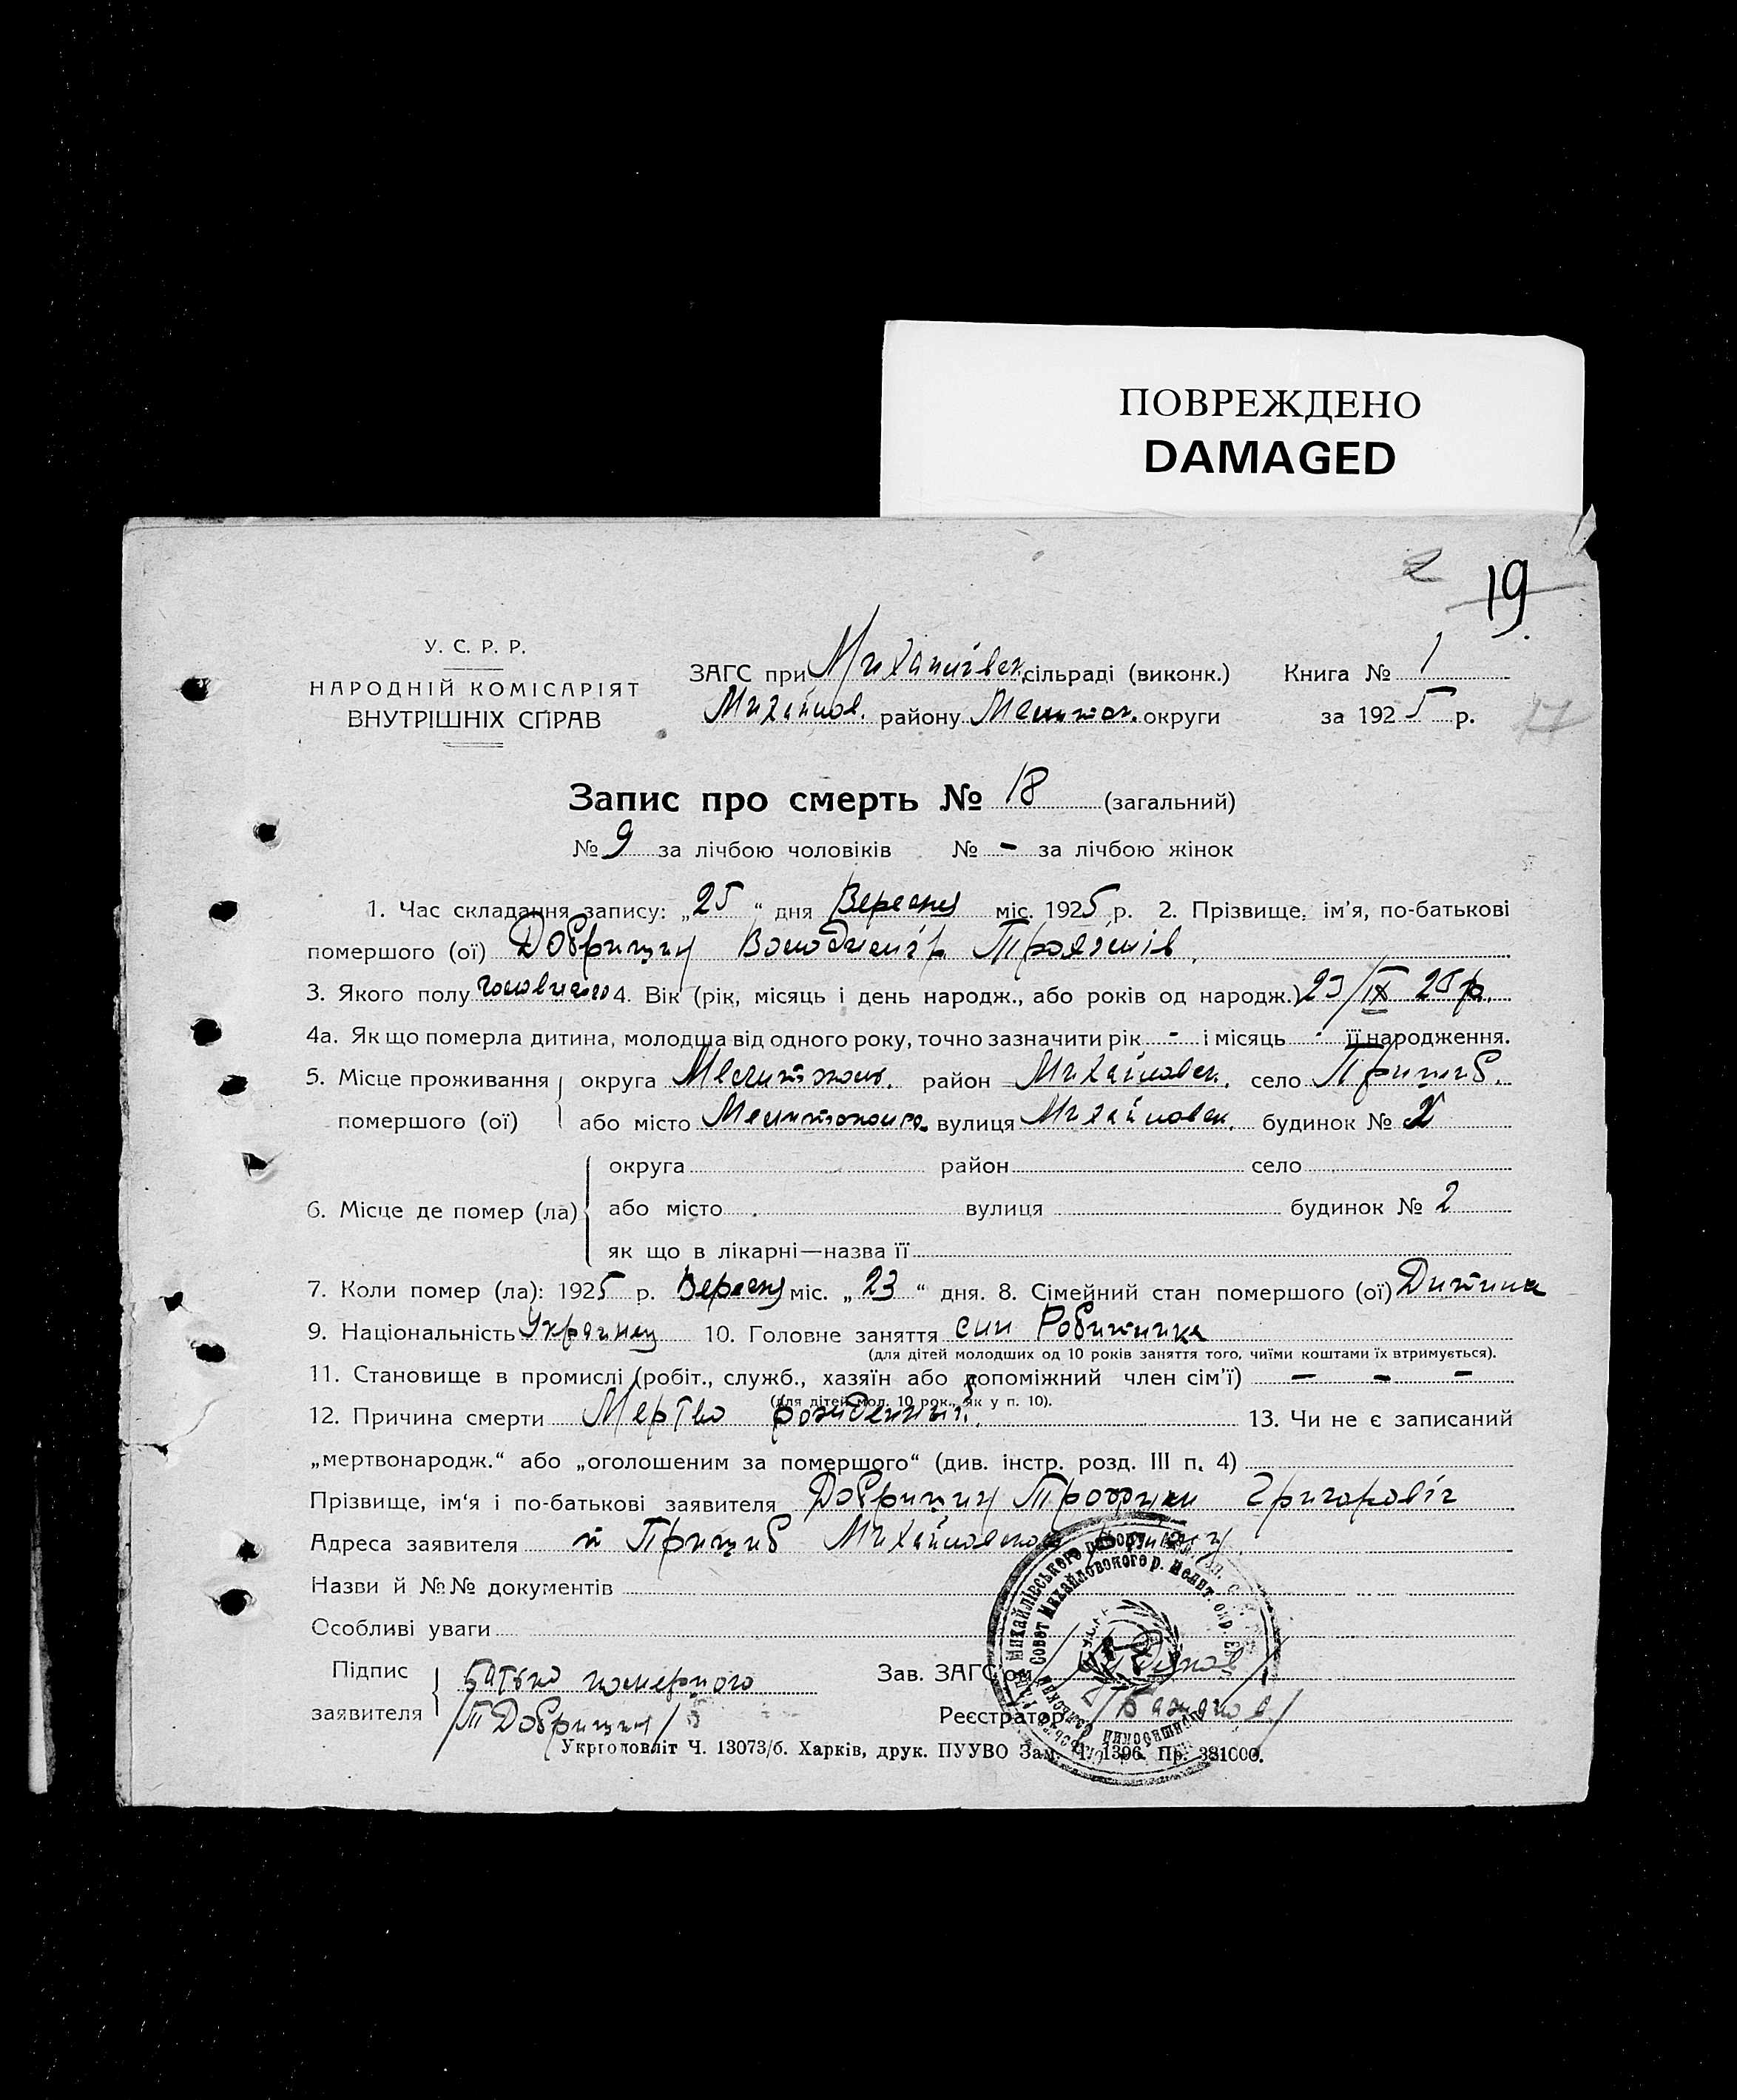 ПОВРЕЖДЕНО
DAMAGED
19
У. С. Р. Р.
НАРОДНІЙ КОМІСАРІЯТ
ВНУТРІШНІХ СПРАВ
ЗАГС при Михайлівск. сільраді (виконк.) Книга № 1
Михайлов. району Мелитоп. округи за 1925 р.
Запис про смерть № 18 (загальний)
№ 9 за лічбою чоловіків № - за лічбою жінок
1. Час складання запису: „25“ дня Вересня міс. 1925 р. 2. Прізвище, ім'я, по-батькові
помершого (ої) Добрицин Володимір
3. Якого полу 4. Вік (рік, місяць і день народж., або років од народж.) 23/IX 25 р.
4а. Як що померла дитина, молодша від одного року, точно зазначити рік - і місяць - її народження.
5. Місце проживання округа Мелитополь. район Михайловск. село Пришиб.
помершого (ої) або місто вулиця Михайловск. будинок № 2
округа район село
6. Місце де помер (ла) або місто вулиця будинок № 2
як що в лікарні—назва її
7. Коли помер (ла): 1925 р. Вересня міс. „23“ дня. 8. Сімейний стан помершого (ої) Дитина
9. Національність Украинец 10. Головне заняття син Робитника
(для дітей молодших од 10 років заняття того, чиїми коштами їх втримується).
11. Становище в промислі (робіт., служб., хазяїн або допоміжний член сім'ї) – – –
(для дітей мол. 10 рок., як у п. 10).
12. Причина смерти Мертво рожденный. 13. Чи не є записаний
„мертвонародж.“ або „оголошеним за помершого“ (див. інстр. розд. III п. 4)
Прізвище, ім'я і по-батькові заявителя Добрицин Григоровіч
Адреса заявителя Пришиб Михайловского району
Назви й №№ документів
Особливі уваги
Підпис батько помершого Зав. ЗАГС'ом
заявителя /Т Добрицин/ Реєстратор
Укрголовліт Ч. 13073/б. Харків, друк. ПУУВО Зам. Ч. 1396. Пр. 381000.